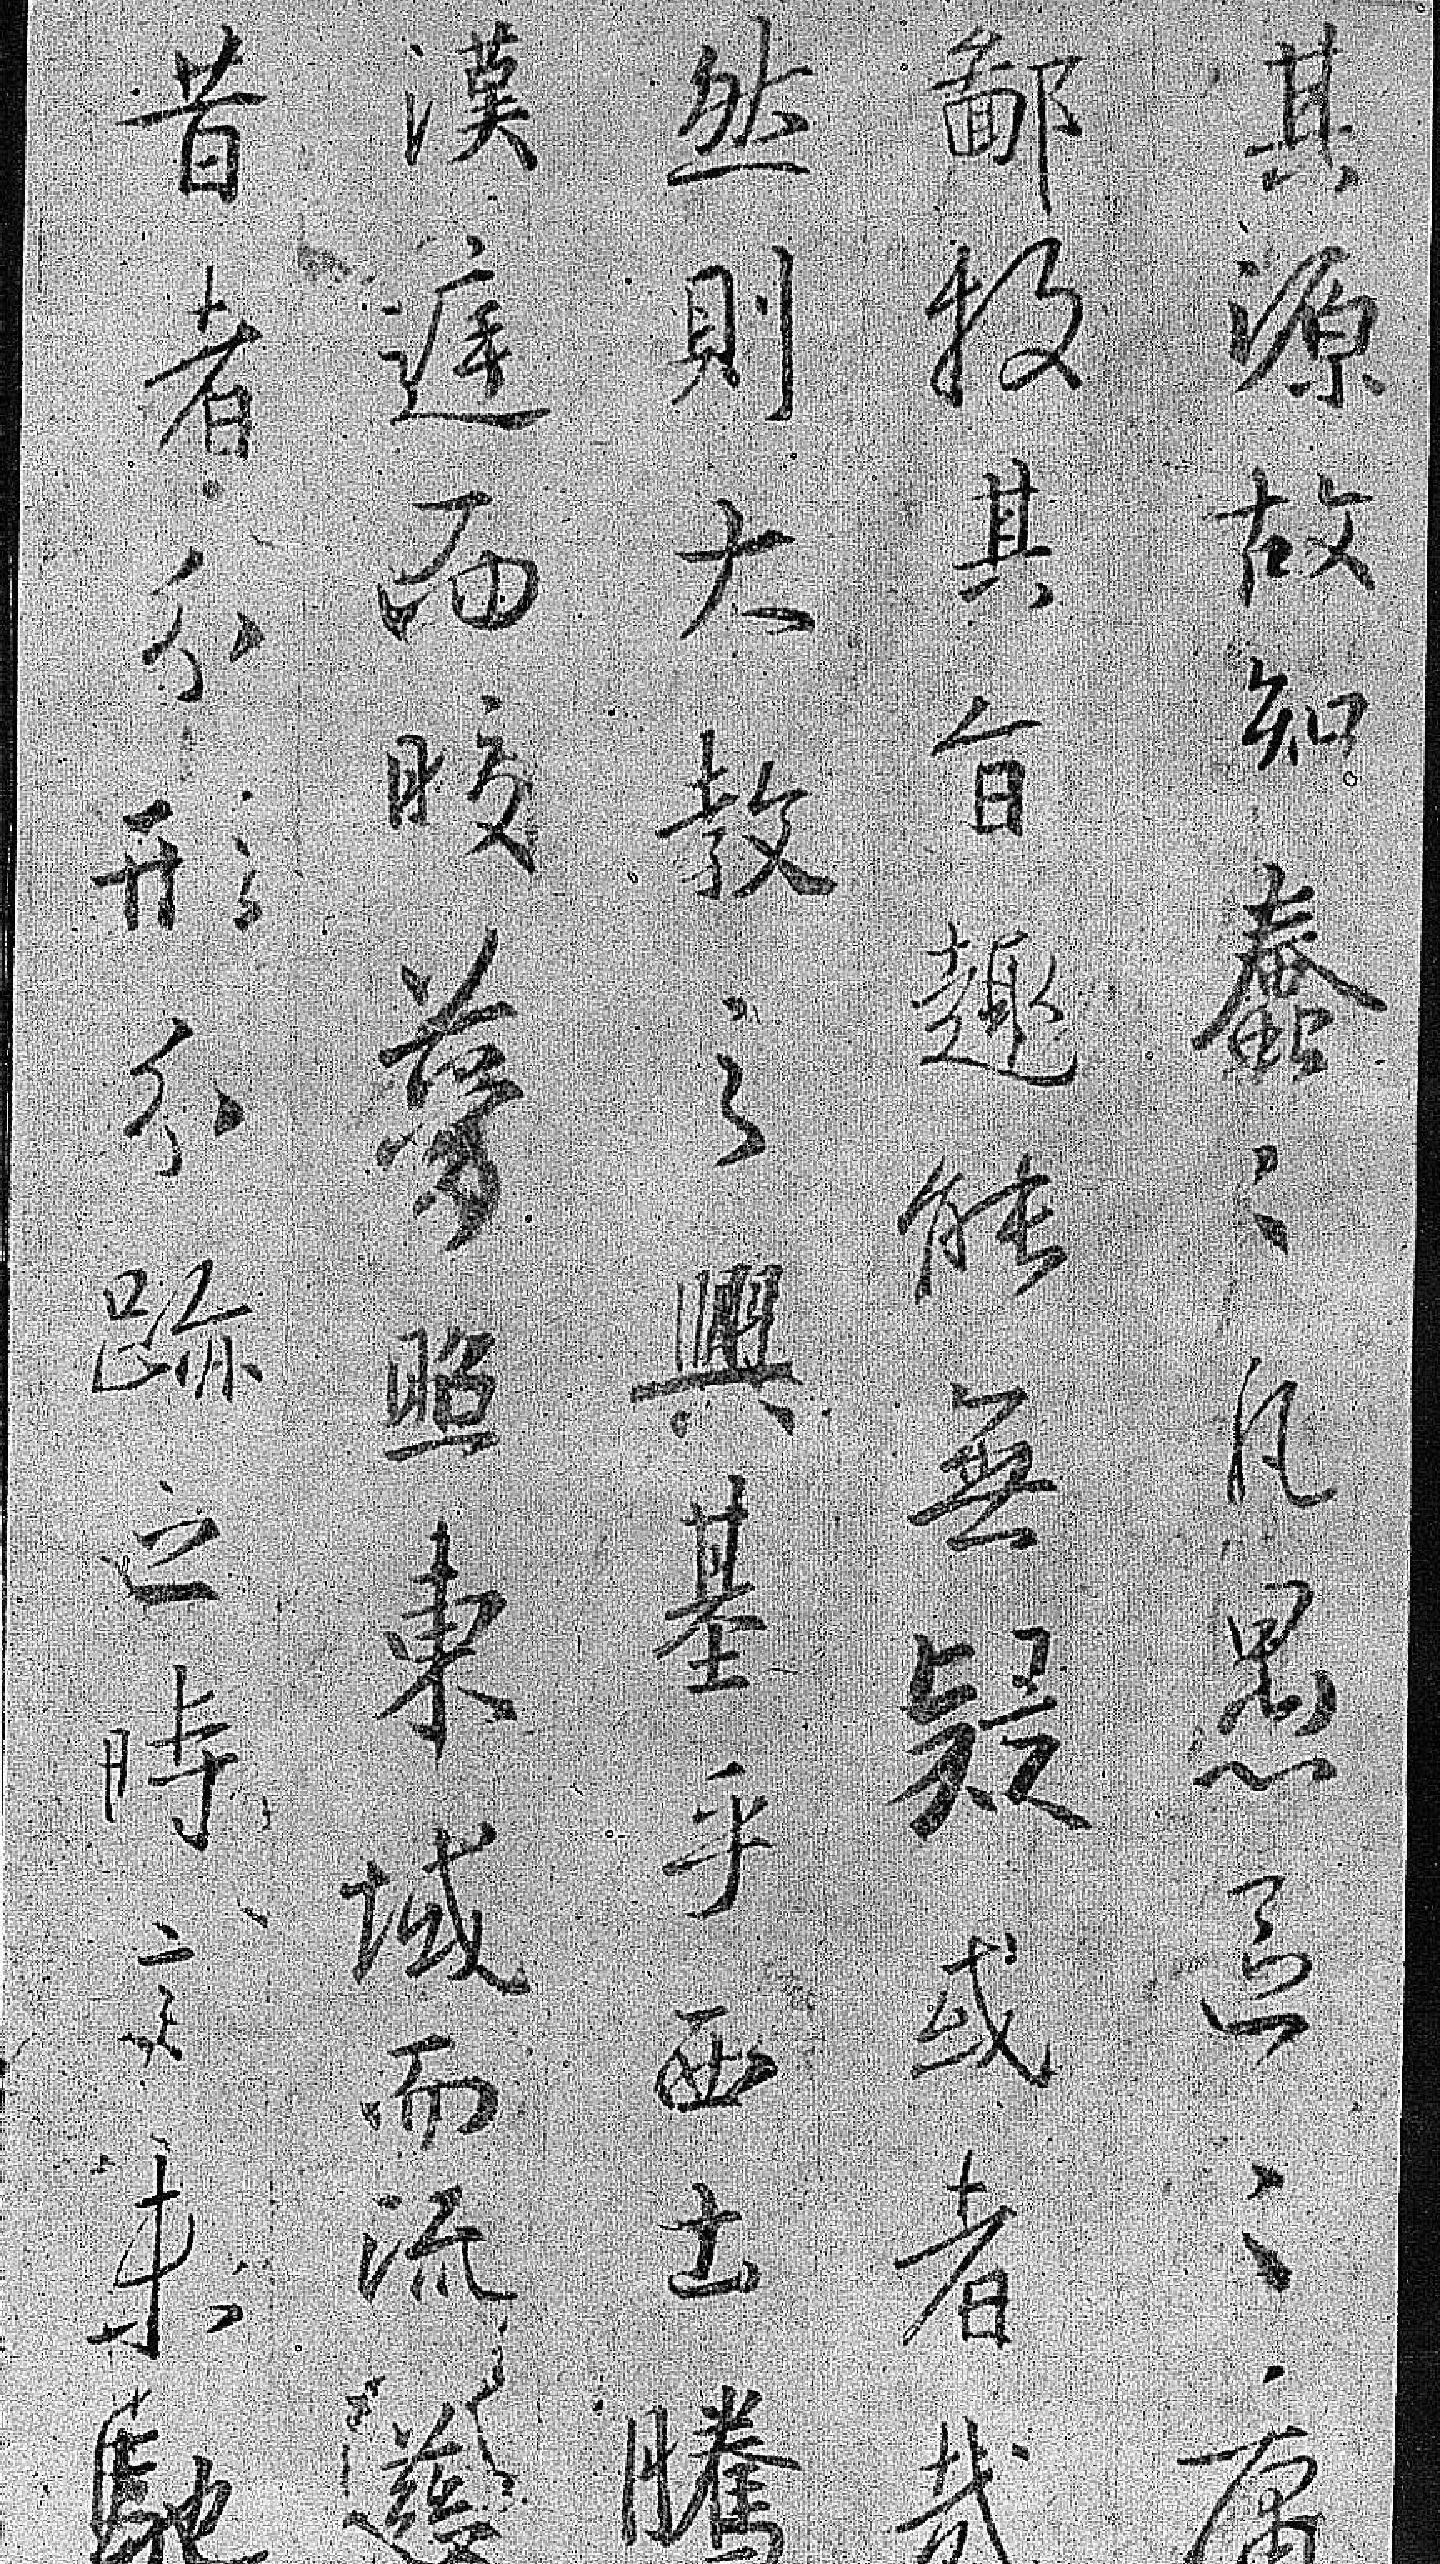 其源故知蠢蠢凡愚區區庸
鄙投其旨趣能無疑或者哉
然則大教之興基乎西土騰
漢庭而皎夢照東域而流慈
昔者分形分跡之時言未馳